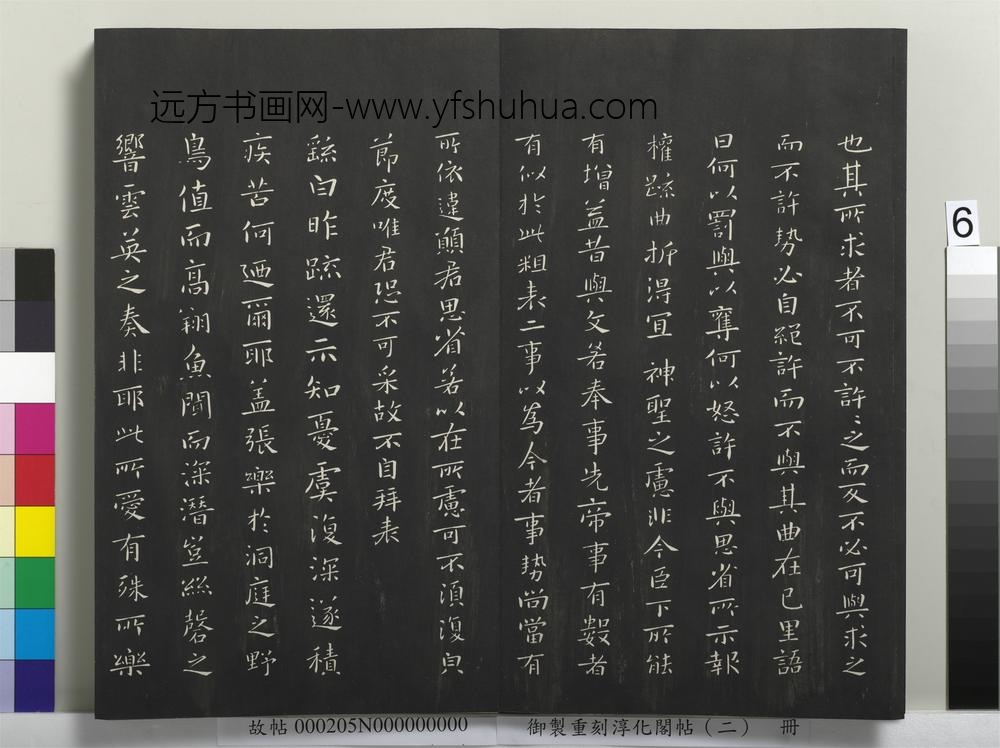 远方书画网-www.yfshuhua.com
也其所求者不可不許許之而反不必可與求之
而不許勢必自絕許而不與其曲在己里語
曰何以罰與以奪何以怒許不與思省所示報
權疏曲折得宜 神聖之慮非今臣下所能
有增益昔與文若奉事先帝事有數者
有似於此粗表二事以為今者事勢尚當有
所依違願君思省若以在所慮可不須復白
節度唯君恐不可采故不自拜表
繇白昨疏還示知憂虞復深遂積
疾苦何迺爾耶蓋張樂於洞庭之野
鳥值而高翔魚聞而深潛豈絲磬之
響雲英之奏非耶此所愛有殊所樂
6
故帖 000205N000000000
御製重刻淳化閣帖（二） 冊